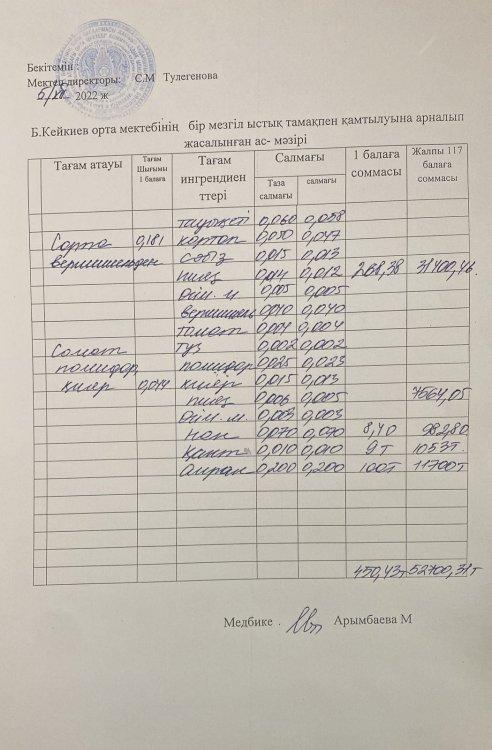 Бекітемін :
Мектеп директоры: С.М Тулегенова
5/XII 2022 ж
Б.Кейкиев орта мектебінің бір мезгіл ыстық тамақпен қамтылуына арналып
жасалынған ас- мәзірі
Тағам атауы Тағам Шығымы 1 балаға Тағам ингрендиен ттері Салмағы 1 балаға соммасы Жалпы 117 балаға соммасы
Таза салмағы салмағы
тауық еті 0,060 0,058
Сорпа 0,181 картоп 0,050 0,047
вермишельден сәбіз 0,015 0,013
пияз 0,014 0,012 268,38 31400,46
Өсім. м 0,005 0,005
вермишель 0,040 0,040
томат 0,004 0,004
Салат тұз 0,002 0,002
помидор помидор 0,025 0,023
қияр 0,014 қияр 0,015 0,013
пияз 0,006 0,005 7564,05
Өсім. м. 0,003 0,003
нан 0,070 0,070 8,40 982,80
қант 0,010 0,010 9 т 1053т.
Айран 0,200 0,200 100т 11700т
450,43т 52700,31т
Медбике . Арымбаева М